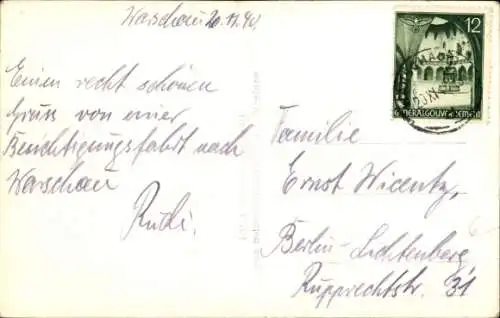 Warschau 20.12.40.
Einen recht schönen
Gruss von einer
Besichtigungsfahrt nach
Warschau
Rudi.
12
GENERALGOUVERNEMENT
Familie
Ernst
Berlin-Lichtenberg
Rupprechtstr. 31